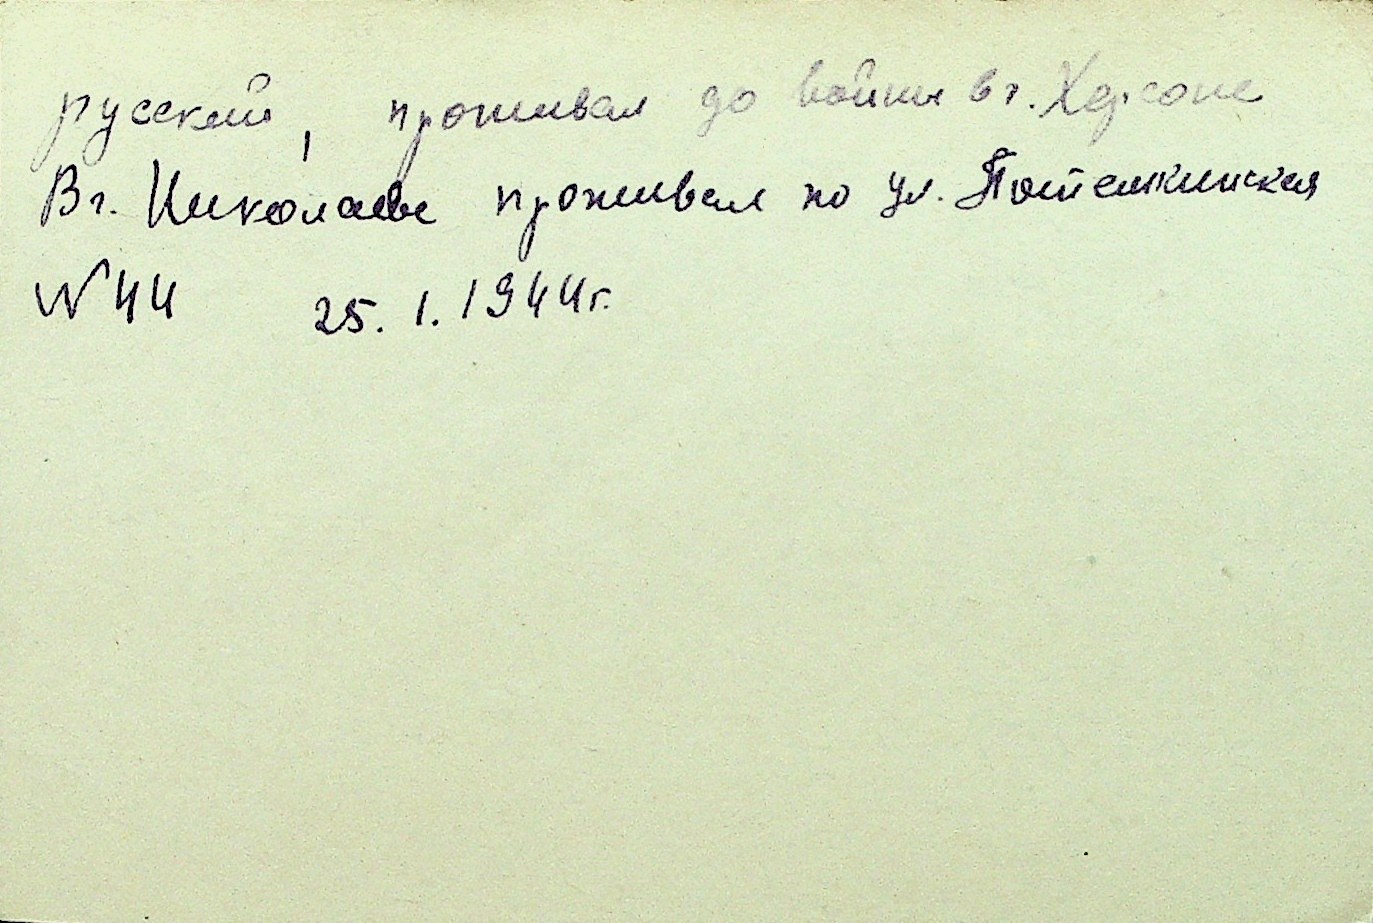 русский, проживал до войны в г. Херсоне
В г. Николаеве проживал по ул. Потемкинская
№ 44 25. 1. 1944 г.